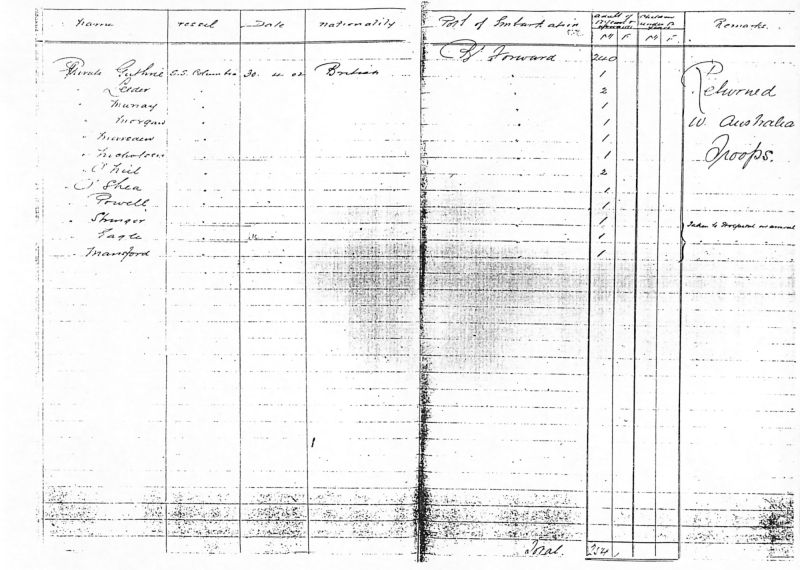 Name Vessel Date Nationality Port of Embarkation Adults of 12 years & upwards Children under 12 years Remarks
M F M F
Bt Forward 240
Private Guthrie S.S. Columbia 30. 4. 02 British 1
" Leeder " " 2
" Murray " " 1
" Morgan " " 1
" " " 1
" Nicholson " " 1
" O'Neil " " 2
" O'Shea " " 1
" Powell " " 1
" Stringer " " 1
" Eagle " " 1
" Mansford " " 1
Returned
W Australia
Troops.
Taken to Hospital on arrival
Total. 254